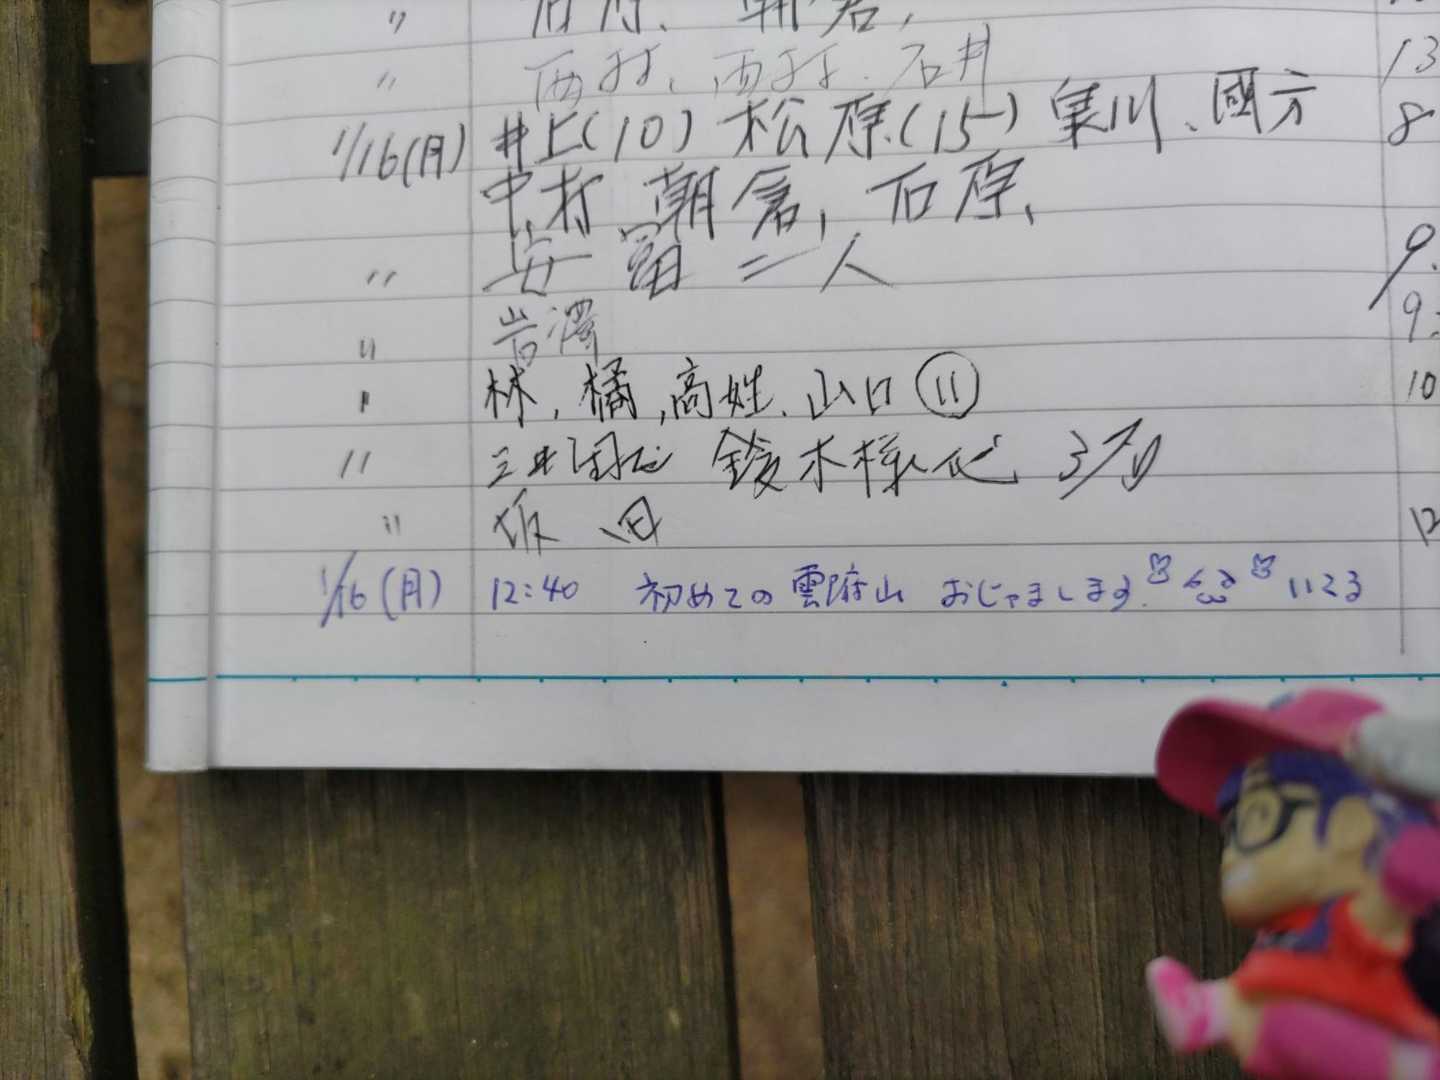 〃 石原、朝倉、
〃 西村、西村、石井 13
1/16(月) 井上(10) 松原(15) 栗川、國方 8
中村 朝倉、石原、
〃 安冨 二人 9.
〃 岩澤 9:
〃 林、橘、高姓、山口 ⑪ 10
〃 鈴木様他 3名
〃 坂田 12
1/16(月) 12:40 初めての雲附山 おじゃまします